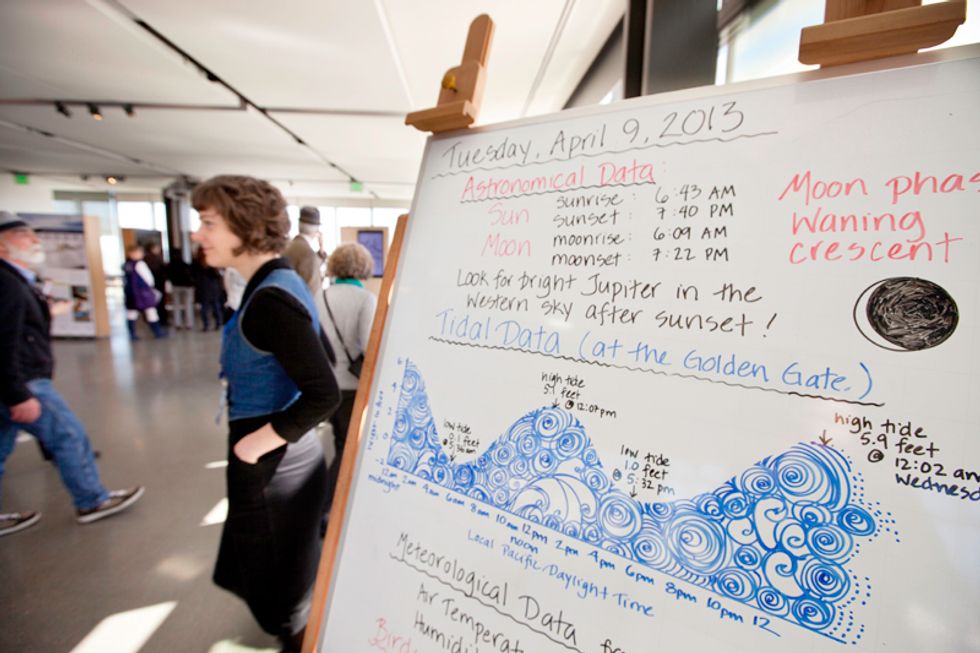 Tuesday, April 9, 2013
Astronomical Data:
Sun sunrise: 6:43 AM
sunset: 7:40 PM
Moon moonrise: 6:09 AM
moonset: 7:22 PM
Moon phas
Waning
crescent
Look for bright Jupiter in the
Western sky after sunset!
Tidal Data (at the Golden Gate)
high tide
5.1 feet
@ 12:07pm
low tide
0.1 feet
@ 5:36 am
low tide
1.0 feet
@ 5:32 pm
high tide
5.9 feet
@ 12:02 am
Wednesd
6
4
2
0
-2
12 2am 4am 6am 8am 10am 12pm 2pm 4pm 6pm 8pm 10pm 12
midnight noon
Local Pacific Daylight Time
Meteorological Data
Air Temperat
Humidi
Bird